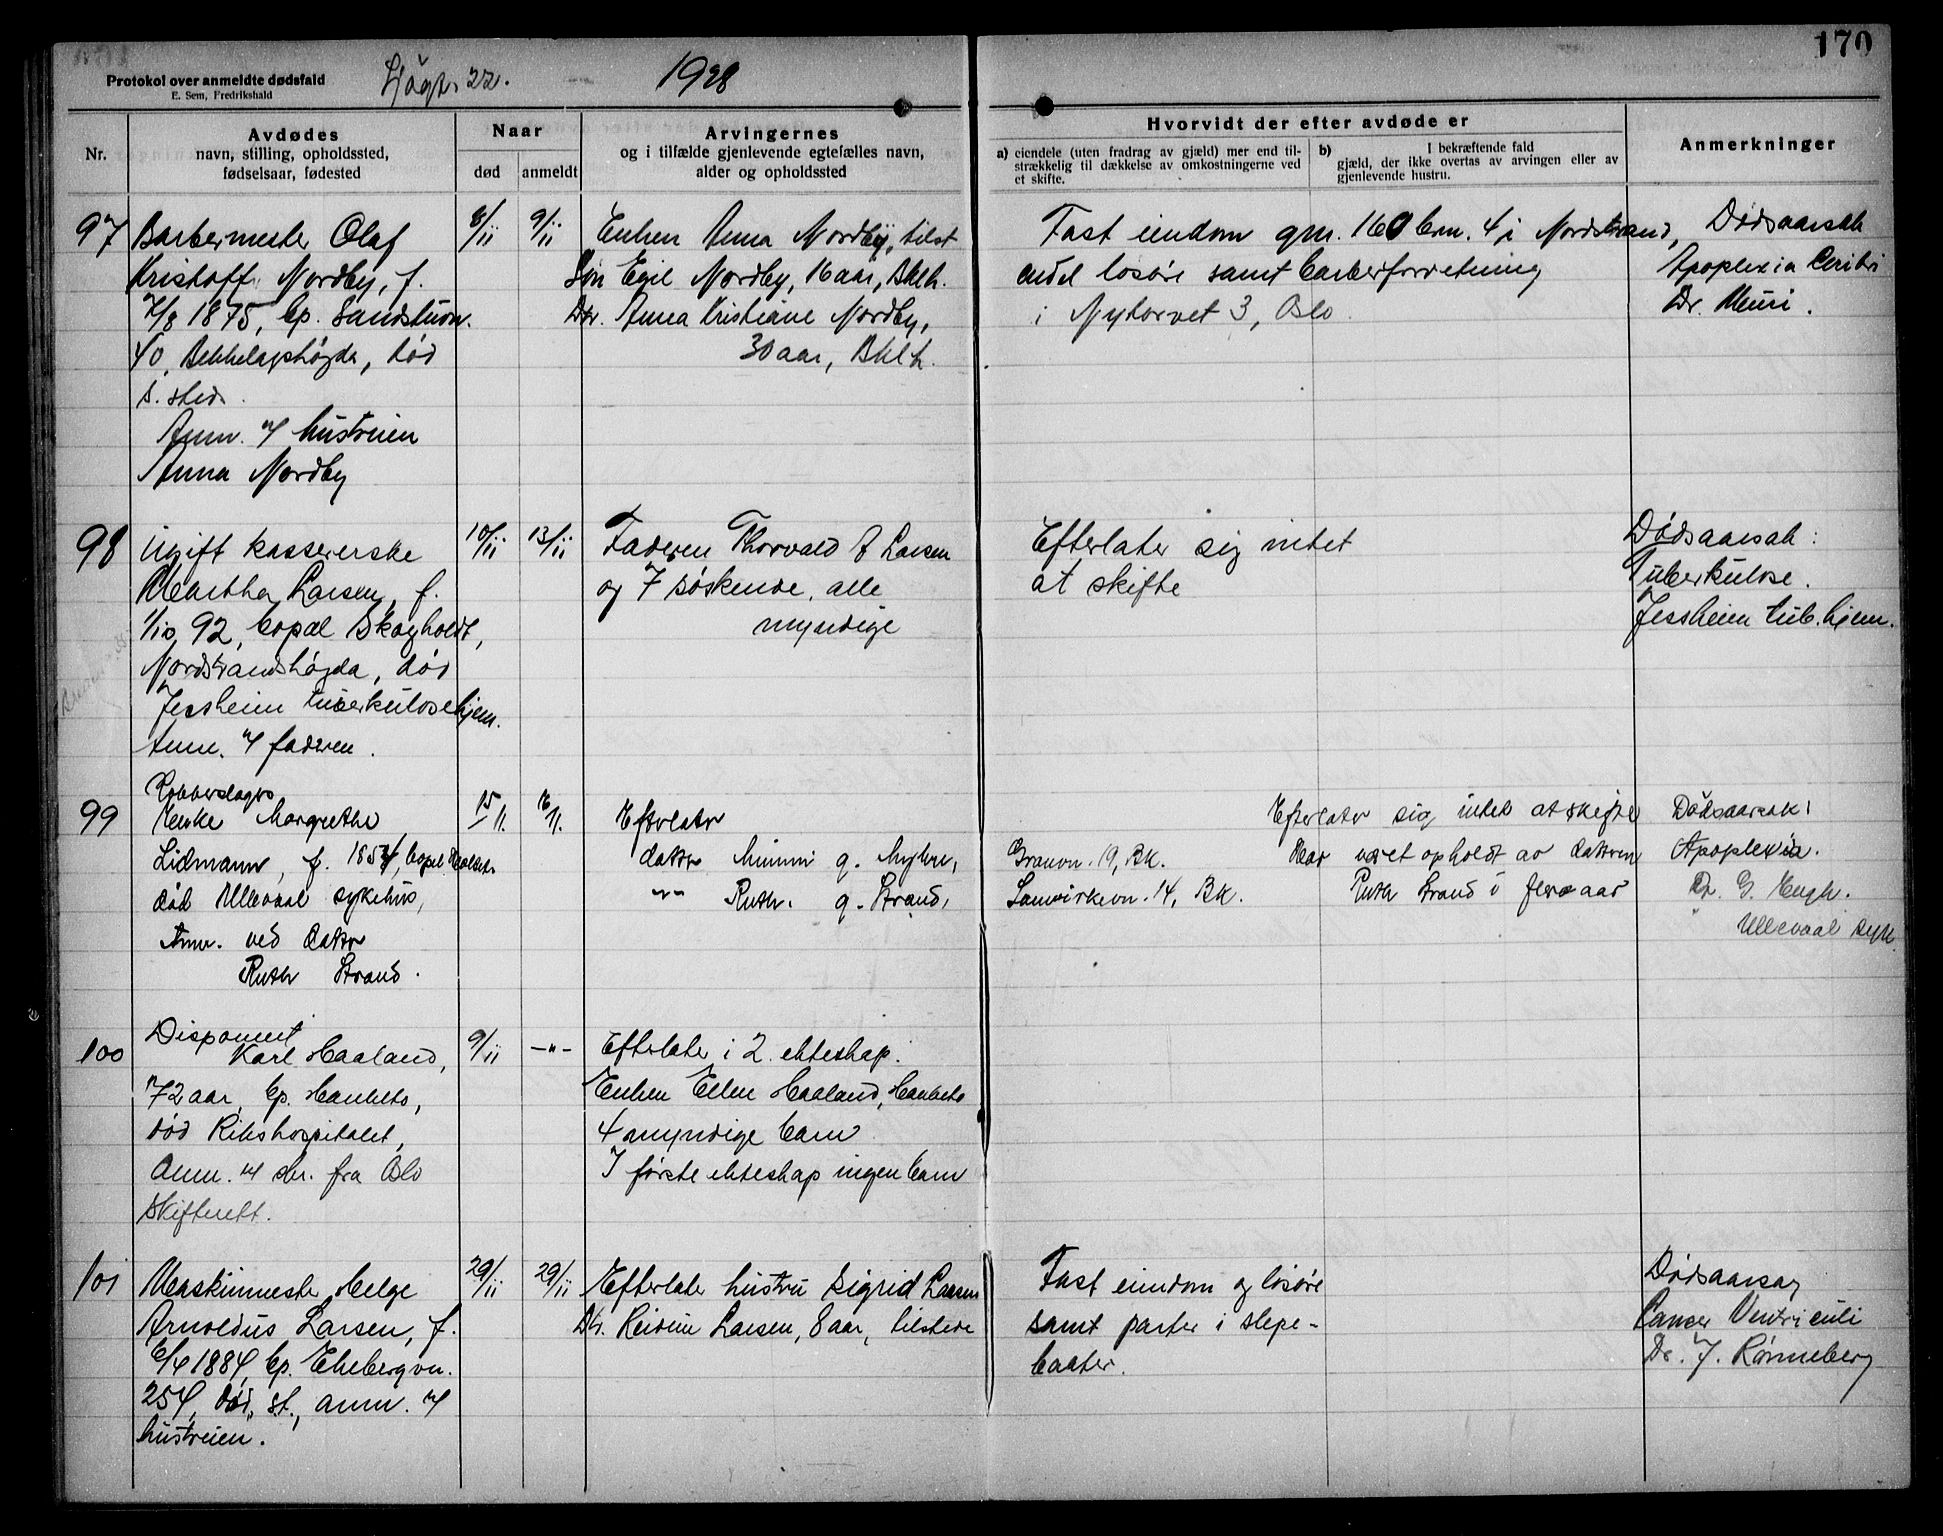 170
Protokol over anmeldte dødsfald
E. Sem, Fredrikshald
1928
Nr.
Avdødes
navn, stilling, opholdssted,
fødselsaar, fødested
Naar
død
anmeldt
Arvingernes
og i tilfælde gjenlevende egtefælles navn,
alder og opholdssted
Hvorvidt der efter avdøde er
a) eiendele (uten fradrag av gjæld) mer end til-
strækkelig til dækkelse av omkostningerne ved
et skifte.
b) I bekræftende fald
gjæld, der ikke overtas av arvingen eller av
gjenlevende hustru.
Anmerkninger
97
Barbermester Olaf
Kristoff. Nordby, f.
7/8 1875, bp. Sandstuvn.
40, Bekkelagshøgda, død
s. sted.
Anm. v/ hustruen
Anna Nordby
8/11
9/11
Enken Anna Nordby, tilst
Søn Egil Nordby, 16 aar, Bklh.
Dtr. Anna Kristiane Nordby,
30 aar, Bklh.
Fast eiendom gnr. 160 bnr. 4 i Nordstrand,
endel løsøre samt barberforretning
i Nytorvet 3, Oslo.
Dødsaarsak
Apoplexia Cerebri
Dr.
98
Ugift kassererske
Martha Larsen, f.
1/10 92, bopæl Skogholdt,
Nordstrandshøgda, død
Jessheim tuberkulosehjem.
Anm. v/ faderen.
10/11
13/11
Faderen Thorvald A Larsen
og 7 søskende, alle
myndige
Efterlater sig intet
at skifte
Dødsaarsak:
Tuberkulose.
Jessheim tub.hjem.
99
Kobberslagers
Enke Margrethe
Lidmann, f. 1854, bopel
død Ullevaal sykehus,
Anm. ved datter
Ruth Strand.
15/11.
16/11.
Efterlater
datter Mimmi g. Myhre,
"" Ruth. g. Strand,
Granvn. 19, Bk.
Samvirkevn. 14, Bk.
Efterlater sig intet at skifte
Har været opholdt av datteren
Ruth Strand i flere aar
Dødsaarsak:
Apoplexia.
Dr. G. Engh.
Ullevaal syk
100
Disponent
Karl Haaland,
72 aar, bp. Hauketo,
død Rikshospitalet,
Anm. v/ skr. fra Oslo
Skifterett.
9/11
-"-
Efterlater i 2. ekteskap.
Enken Ellen Haaland, Hauketo
4 myndige barn
I første ekteskap ingen barn
101
Maskinmester Helge
Arnoldus Larsen, f.
6/4 1884, bp. Ekebergvn.
254, død s. st., anm. v/
hustruen.
29/11
29/11
Efterlater hustru Sigrid Larsen
Dtr. Reidun Larsen, 8 aar, tilstede
Fast eiendom og løsøre
samt parter i slepe-
baater.
Dødsaarsag
Cancer Ventriculi
Dr. J. Rønneberg